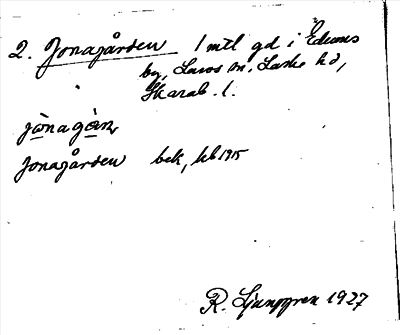 2. Jonagården 1 mtl gd i Edums
by, Laske hd,
Skarab. l.
Jonagården bek, kb 1915
R. Ljunggren 1927